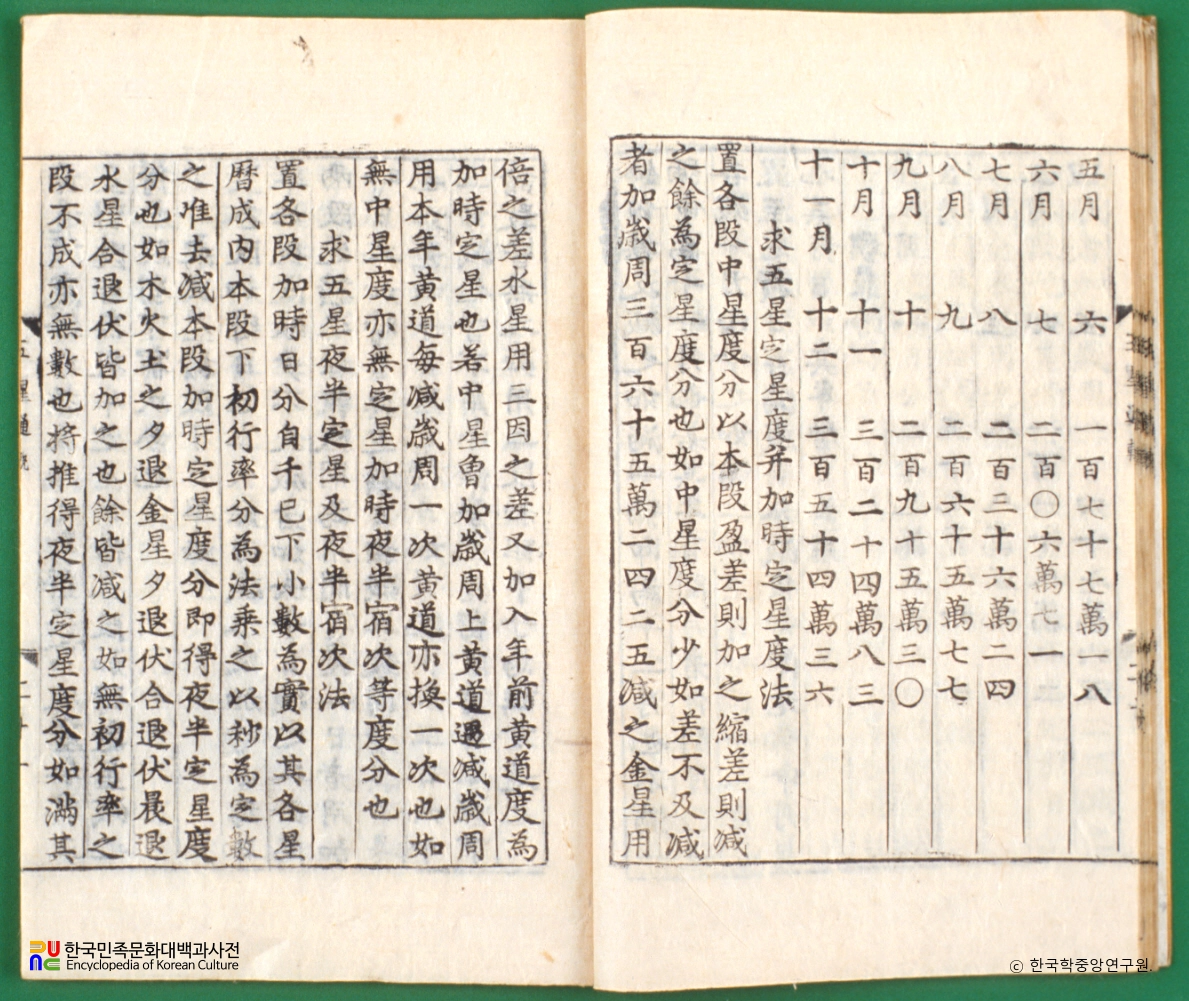 五月 六 一百七十七萬一八
六月 七 二百〇六萬七一
七月 八 二百三十六萬二四
八月 九 二百六十五萬七七
九月 十 二百九十五萬三〇
十月 十一 三百二十四萬八三
十一月 十二 三百五十四萬三六
求五星定星度幷加時定星度法
置各段中星度分以本段盈差則加之縮差則减
之餘為定星度分也如中星度分少如差不及减
者加歲周三百六十五萬二四二五减之金星用
倍之差水星用三因之差又加入年前黃道度為
加時定星也若中星曾加歲周上黃道過减歲周
用本年黃道每减歲周一次黃道亦換一次也如
無中星度亦無定星加時夜半宿次等度分也
求五星夜半定星及夜半宿次法
置各段加時日分自千已下小數為實以其各星
曆成內本段下初行率分為法乘之以秒為定數
之唯去减本段加時定星度分即得夜半定星度
分也如木火土之夕退金星夕退伏合退伏晨退
水星合退伏皆加之也餘皆减之如無初行率之
段不成亦無數也將推得夜半定星度分如滿其
한국민족문화대백과사전
Encyclopedia of Korean Culture
ⓒ 한국학중앙연구원